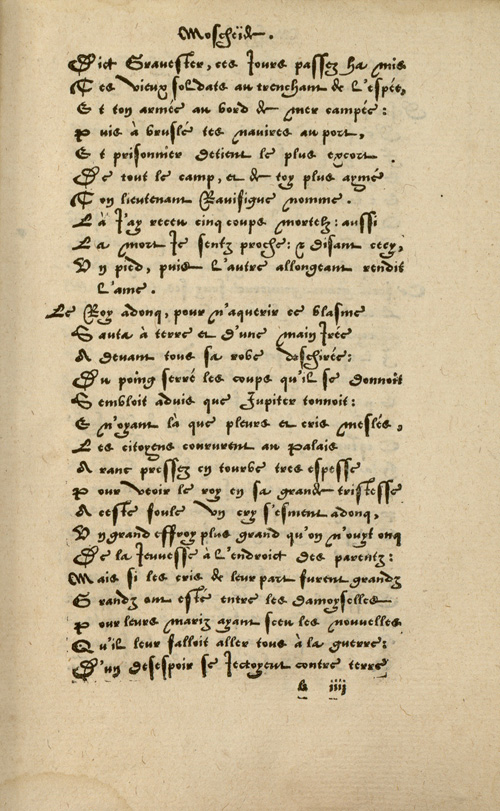 Moscheïde.
Dict Gravester, ces Jours passez ha mis
Tes vieux soldats au trenchant de l'espée,
Et ton armée au bord de mer campée:
Puis à bruslé tes navires au port,
Et prisonnier detient le plus excort.
De tout le camp, et de toy plus aymé
Ton lieutenant Ravisigue nomme.
Là J'ay receu cinq coups mortelz: aussi
La mort Je sentz proche: & disant cecy,
Un pied, puis l'autre allongeant rendit
L'ame.
Le Roy adonq, pour n'aquerir ce blasme
Sauta à terre et d'une main Jrée
A devant tous sa robe deschirée:
Du poing serré les coups qu'il se donnoit
Sembloit advis que Jupiter tonnoit:
E n'oyant là que pleurs et cris meslés,
Les citoyens coururent au palais
A ranc pressez en tourbe tres espesse
Pour veoir le roy en sa grande tristesse
A ceste foule un cry s'esment adonq,
Un grand effroy plus grand qu'on n'ouyt onq
De la Jeunesse à l'endroict des parentz:
Mais si les cris de leur part furent grandz
Grandz ont esté entre les damoyselles
Pour leurs mariz ayant sceu les nouvelles
Qu'il leur falloit aller tous à la guerre:
D'un desespoir se Jectoyent contre terre
A iiij